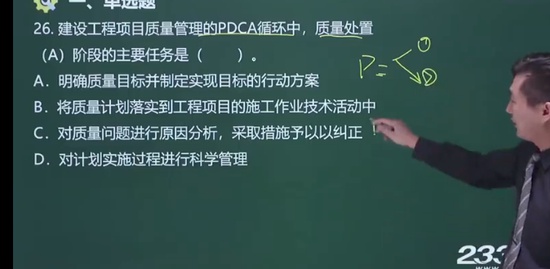 一、单选题
26. 建设工程项目质量管理的PDCA循环中，质量处置
（A）阶段的主要任务是（　　）。
P= ①
②
A．明确质量目标并制定实现目标的行动方案
B．将质量计划落实到工程项目的施工作业技术活动中
C．对质量问题进行原因分析，采取措施予以以纠正
D．对计划实施过程进行科学管理
233